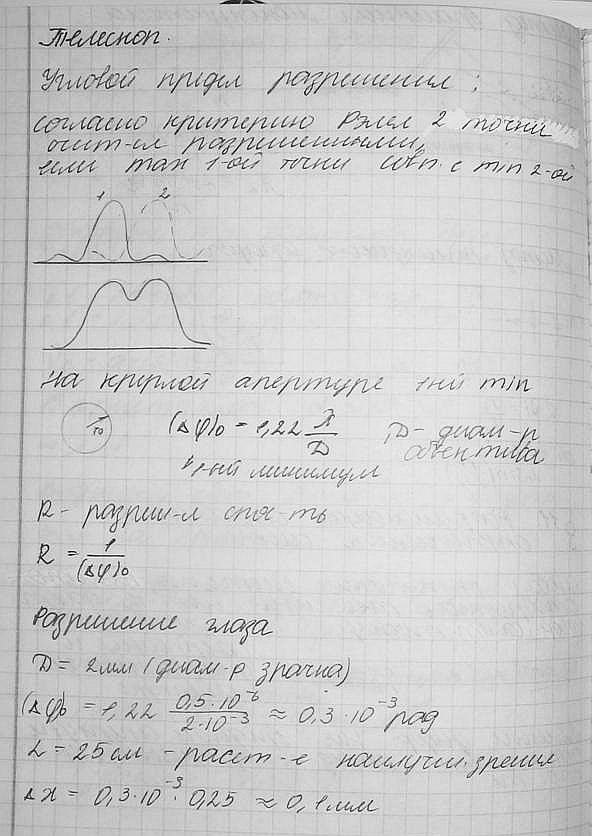 Телескоп.
Угловой предел разрешения:
согласно критерию Рэлея 2 точки
счит-ся разрешенными,
если max 1-ой точки совп. с min 2-ой
1 2
На круглой апертуре 1-ый min
r₀ (Δφ)₀ = 1,22 λ/D , D - диам-р
объектива
1-ый минимум
R - разреш-я спос-ть
R = 1/(Δφ)₀
Разрешение глаза
D = 2мм (диам-р зрачка)
(Δφ)₀ = 1,22 0,5·10⁻⁶/2·10⁻³ ≈ 0,3·10⁻³ рад
L = 25 см - расст-е наилучш. зрения
Δx = 0,3·10⁻³·0,25 ≈ 0,1мм